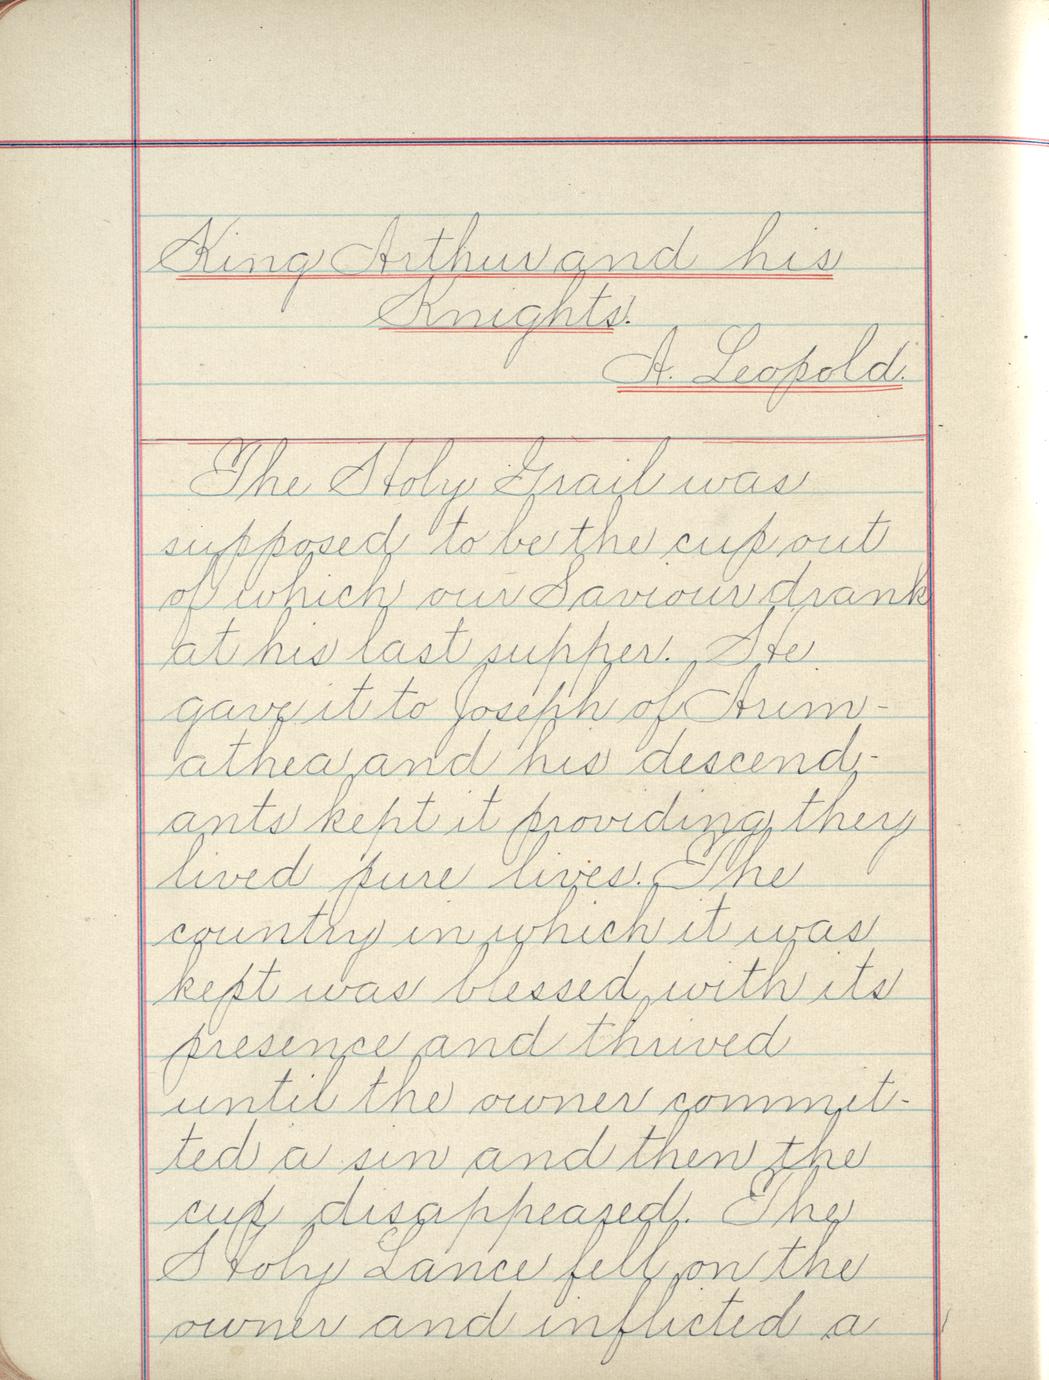 King Arthur and his
Knights.
A. Leopold.
The Holy Grail was
supposed to be the cup out
of which our Saviour drank
at his last supper. He
gave it to Joseph of Arim-
athea and his descend-
ants kept it providing they
lived pure lives. The
country in which it was
kept was blessed with its
presence and thrived
until the owner commit-
ted a sin and then the
cup disappeared. The
Holy Lance fell on the
owner and inflicted a